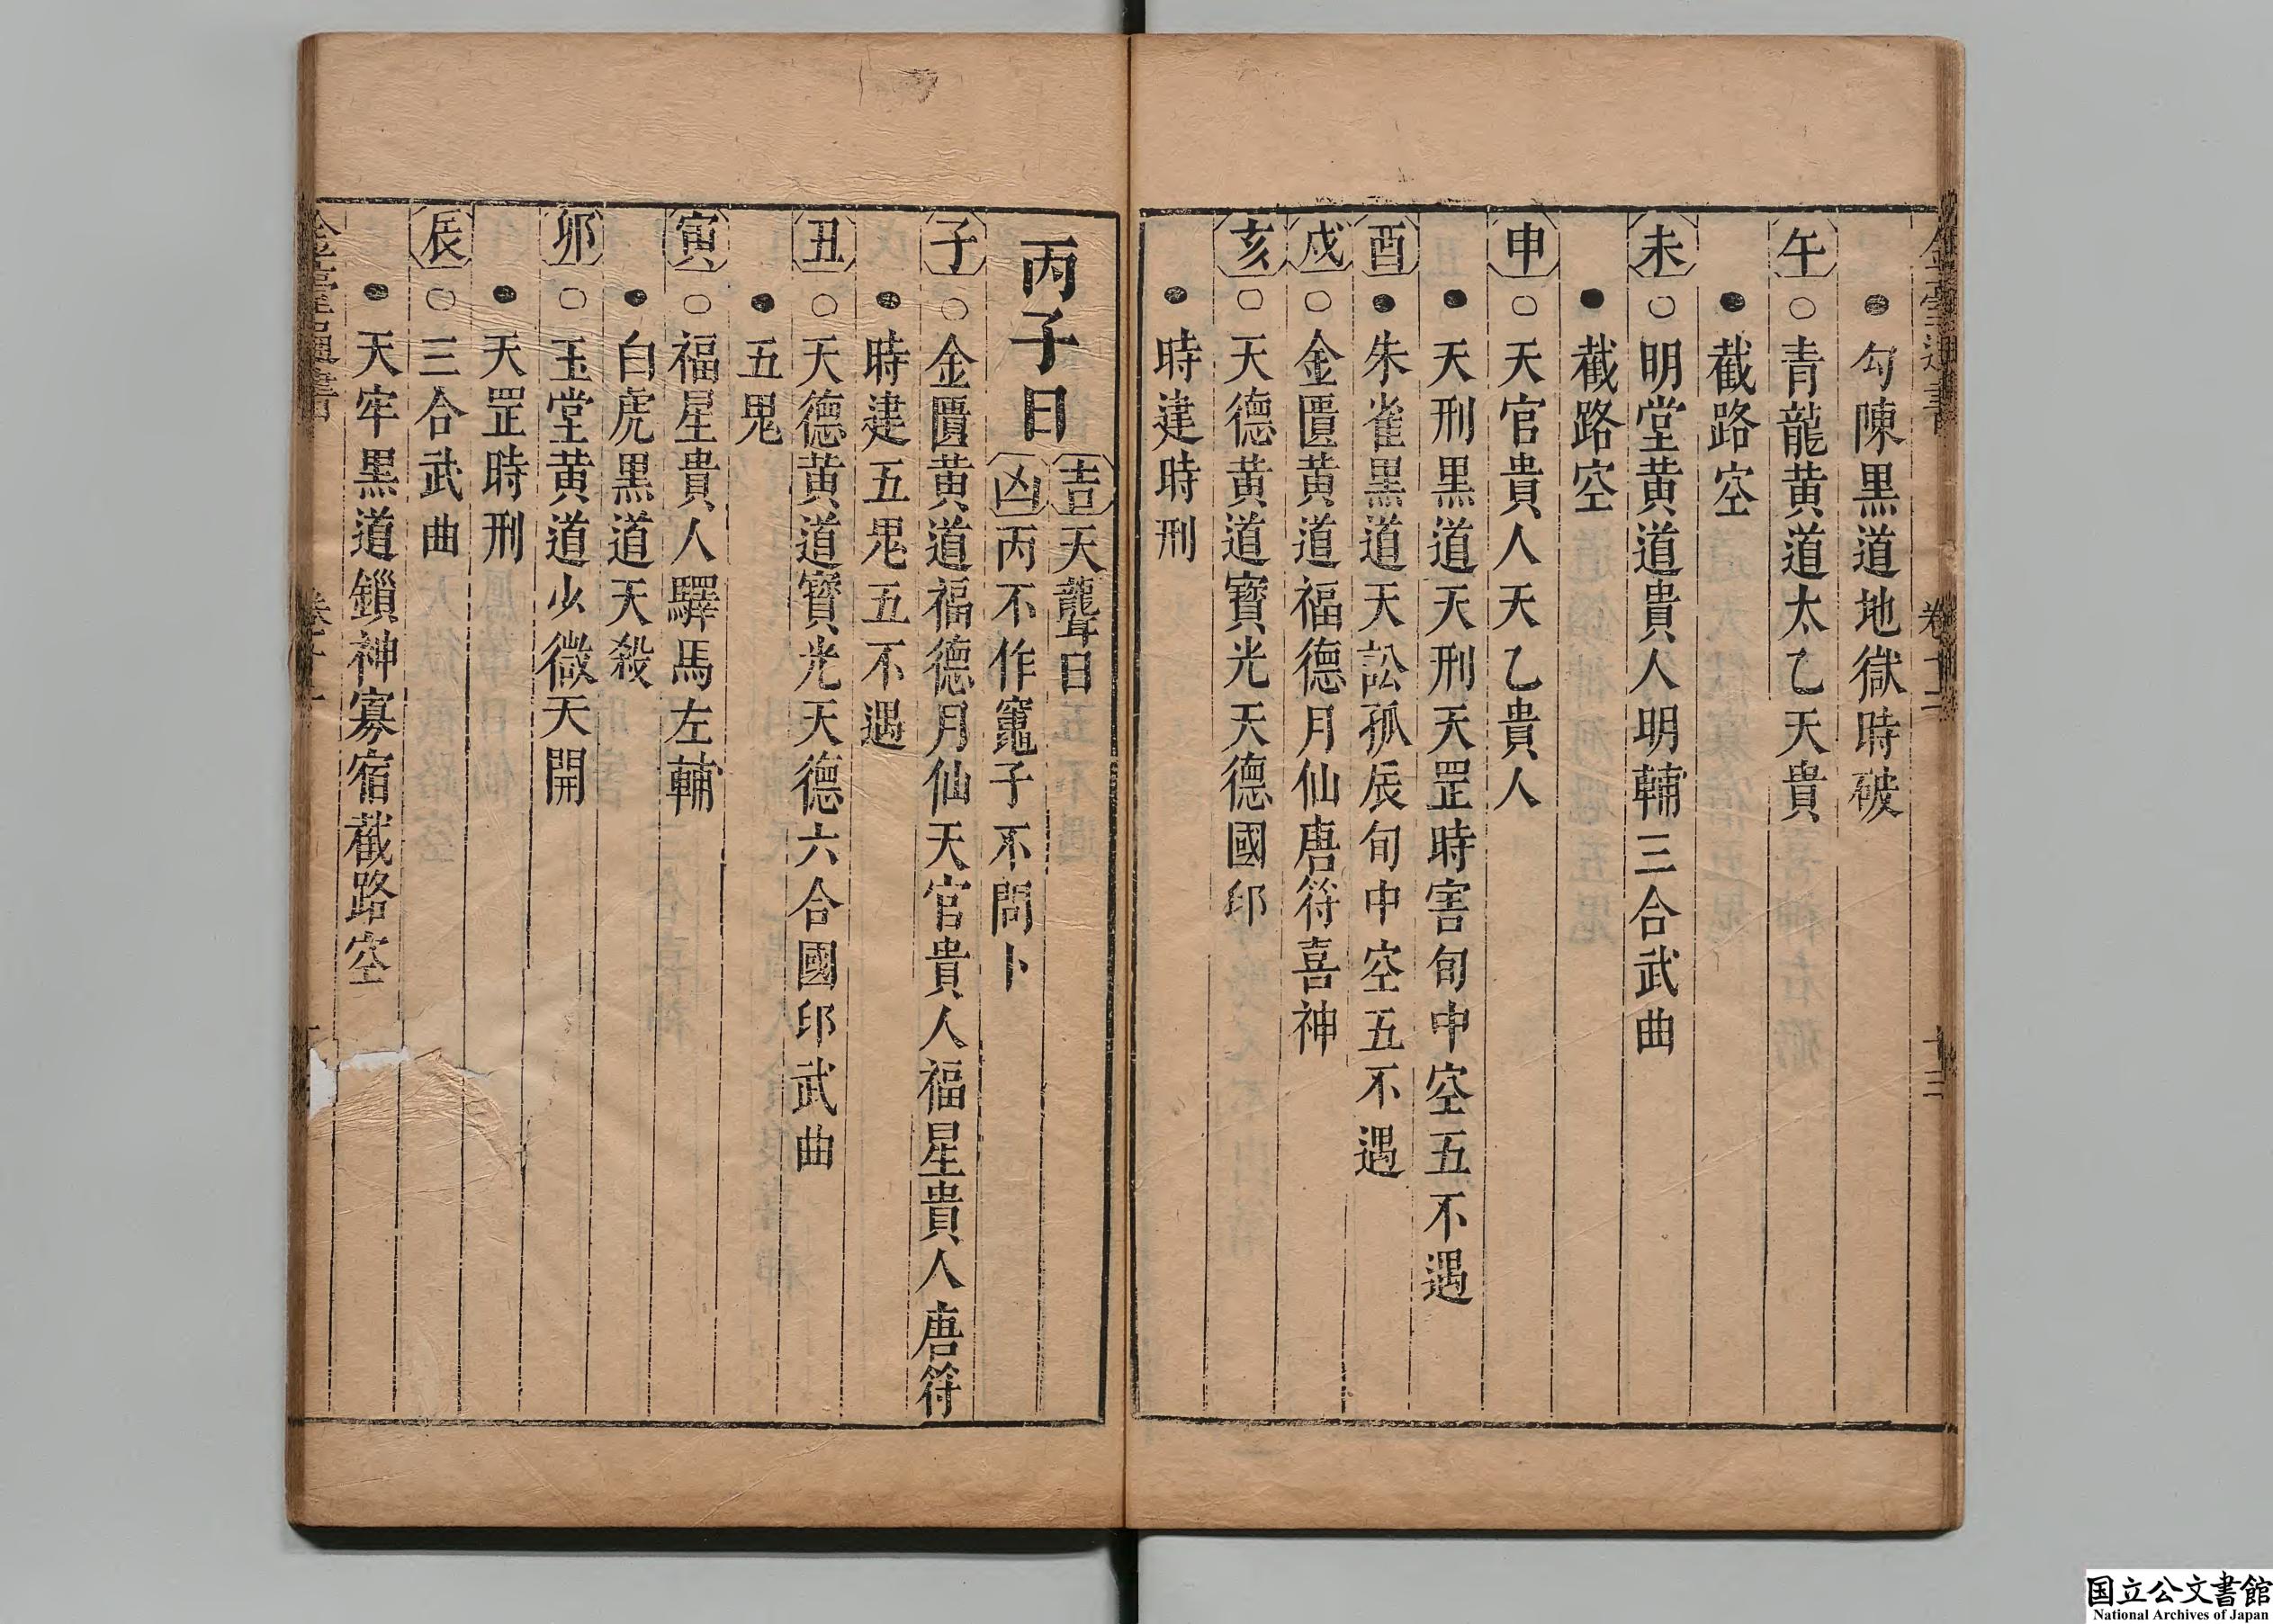 ●勾陳黒道地獄時破
午○青龍黄道太乙天貴
●截路空
未○明堂黄道貴人明輔三合武曲
●截路空
申○天官貴人天乙貴人
●天刑黒道天刑天罡時害旬中空五不遇
酉●朱雀黒道天訟孤辰旬中空五不遇
戌○金匱黄道福德月仙唐符喜神
亥○天德黄道寳光天德國印
●時建時刑
丙子日
吉天聾日
凶丙不作竈子不問卜
子○金匱黄道福德月仙天官貴人福星貴人唐符
●時建五鬼五不遇
丑○天德黄道寳光天德六合國印武曲
●五鬼
寅○福星貴人驛馬左輔
●白虎黒道天殺
卯○玉堂黄道少微天開
●天罡時刑
辰○三合武曲
●天牢黒道鎻神寡宿截路空
国立公文書館
National Archives of Japan